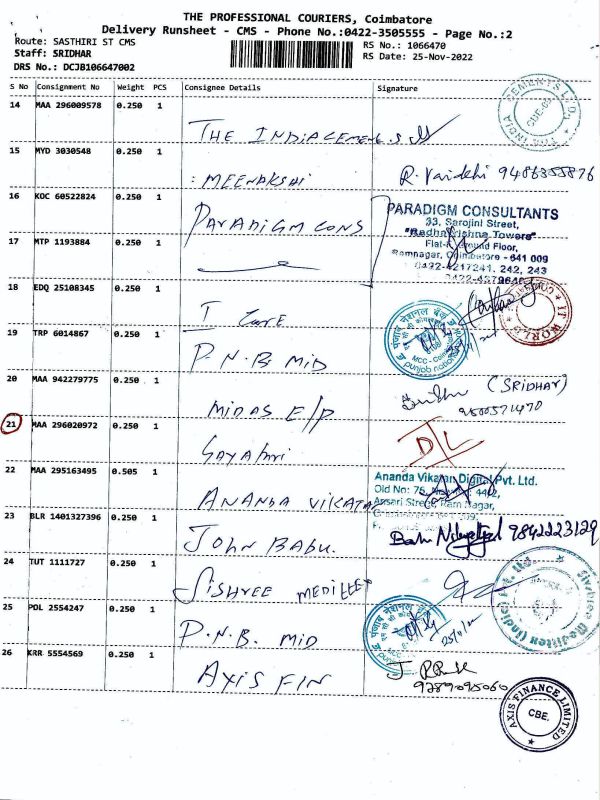 THE PROFESSIONAL COURIERS, Coimbatore
Delivery Runsheet - CMS - Phone No.:0422-3505555 - Page No.:2
Route: SASTHIRI ST CMS
RS No.: 1066470
Staff: SRIDHAR
RS Date: 25-Nov-2022
DRS No.: DCJB106647002
S No Consignment No Weight PCS Consignee Details Signature
14 MAA 296009578 0.250 1
THE INDIA CEMENT
15 MYD 3030548 0.250 1
MEENAKSHI
16 KOC 60522824 0.250 1
PARADIGM CONS
PARADIGM CONSULTANTS
33, Sarojini Street,
"Radhakrishna Towers"
Ground Floor,
Ramnagar, Coimbatore - 641 009
0422-4217241, 242, 243
17 MTP 1193884 0.250 1
18 EDQ 25108345 0.250 1
I Care
19 TRP 6014867 0.250 1
P.N.B. MID
20 MAA 942279775 0.250 1
MIDAS E/P
(SRIDHAR)
9500571470
21 MAA 296020972 0.250 1
Gayathri
D/L
22 MAA 295163495 0.505 1
ANANDA VIKATAN
Ananda Vikatan Digital Pvt. Ltd.
Old No: 75,
Ansari Street, Ram Nagar,
23 BLR 1401327396 0.250 1
JOHN BABU.
9842223129
24 TUT 1111727 0.250 1
25 POL 2554247 0.250 1
P.N.B. MID
26 KRR 5554569 0.250 1
AXIS FIN
AXIS FINANCE LIMITED
CBE.